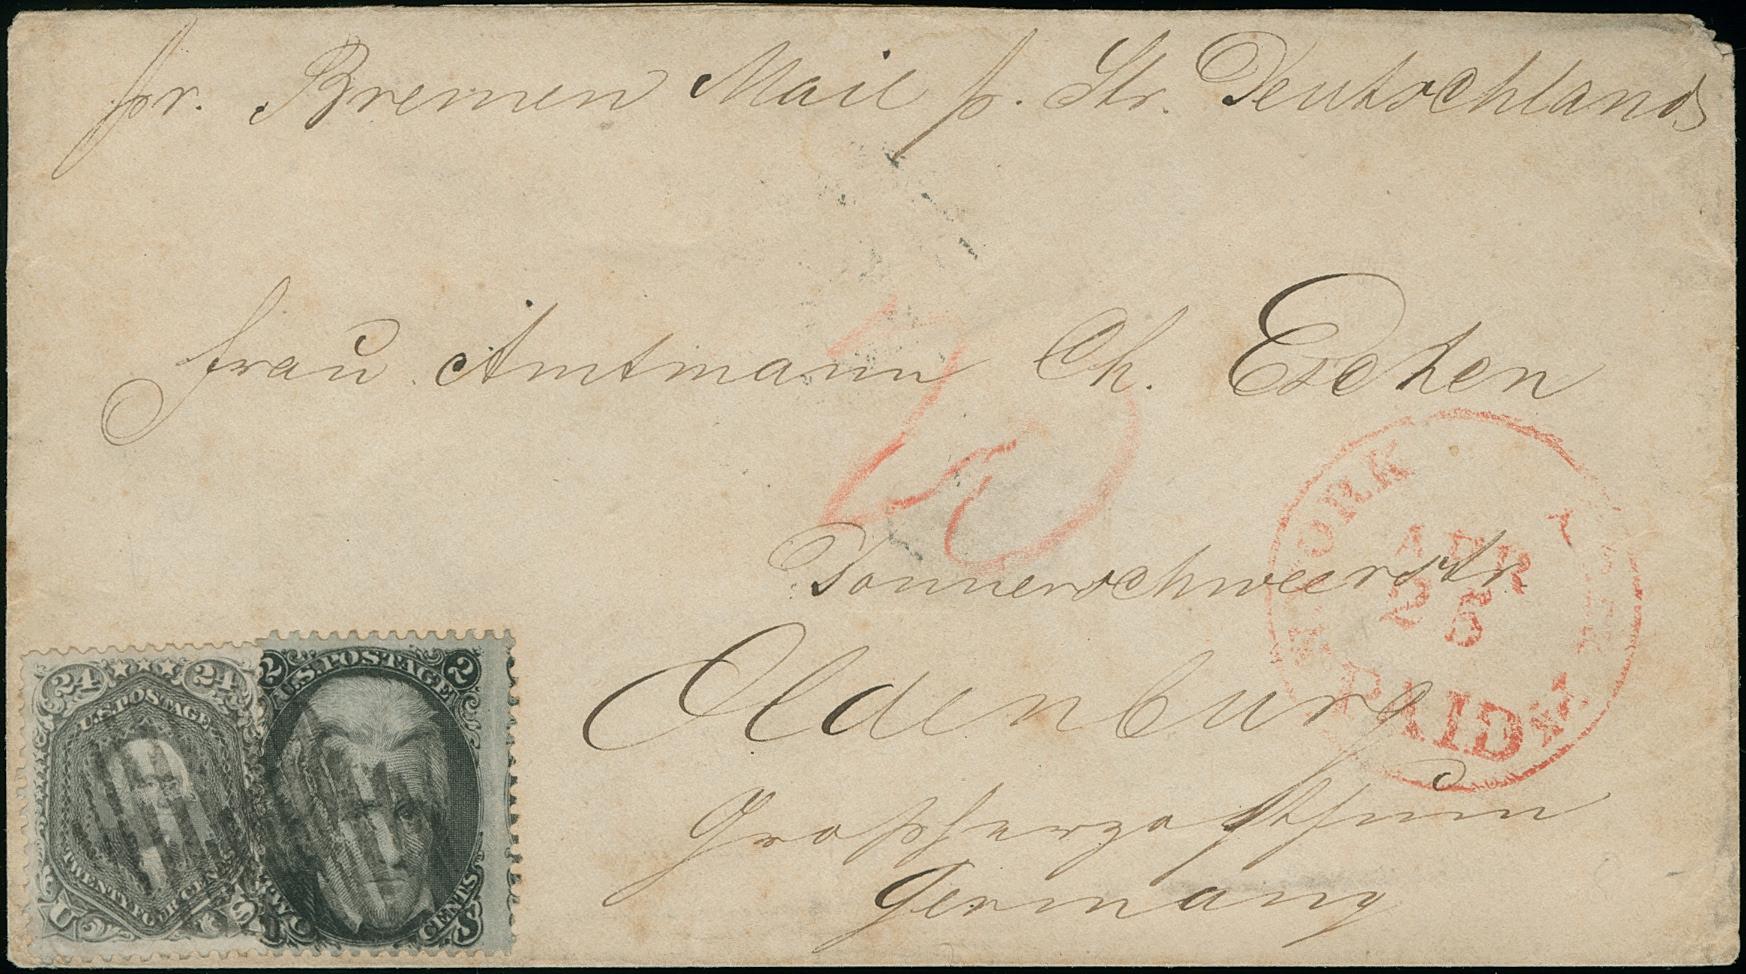 pr. Bremen Mail p. Str. Deutschland
Frau Amtmann Ch. Eschen
Donnerschweerstr.
Oldenburg
Großherzogthum
Germany
YORK
APR
25
PAID
24 24
U.S. POSTAGE
TWENTY FOUR CENTS
U S
2 2
U.S. POSTAGE
TWO CENTS
U S